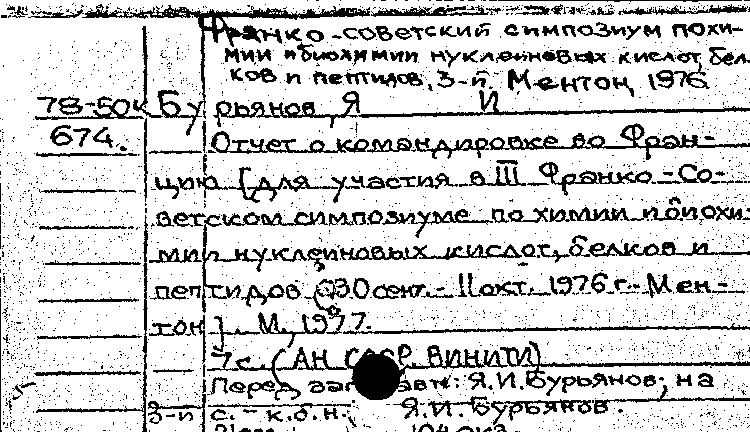 Франко-советский симпозиум по хи-
мии и биохимии нуклеиновых кислот, бел-
ков и пептидов, 3-й. Ментон, 1976.
78-50к Бурьянов, Я И
674. Отчет о командировке во Фран-
цию [для участия в III Франко-Со-
ветском симпозиуме по химии и биохи-
мии нуклеиновых кислот, белков и
пептидов 30 сент.- 11 окт. 1976 г.- Мен-
тон]. М., 1977.
7 с. (АН СССР. ВИНИТИ)
Перед авт.: Я.И.Бурьянов; на
3-й с. - к.б.н. Я.И. Бурьянов.